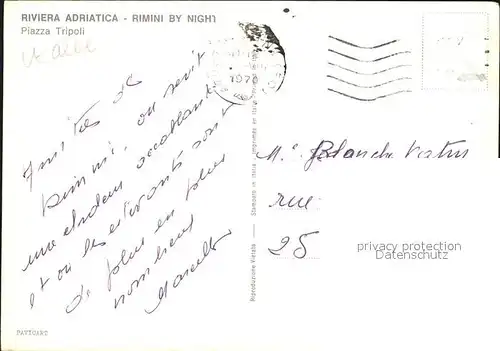 RIVIERA ADRIATICA - RIMINI BY NIGHT
Piazza Tripoli
1970
Amitiés de
Rimini, où
une chaleur accablante
et où les estivants sont
de plus en plus
nombreux
Marcelle
Stampato in Italia
Riproduzione Vietata
Blanche
rue
25
privacy protection
Datenschutz
PAVICART